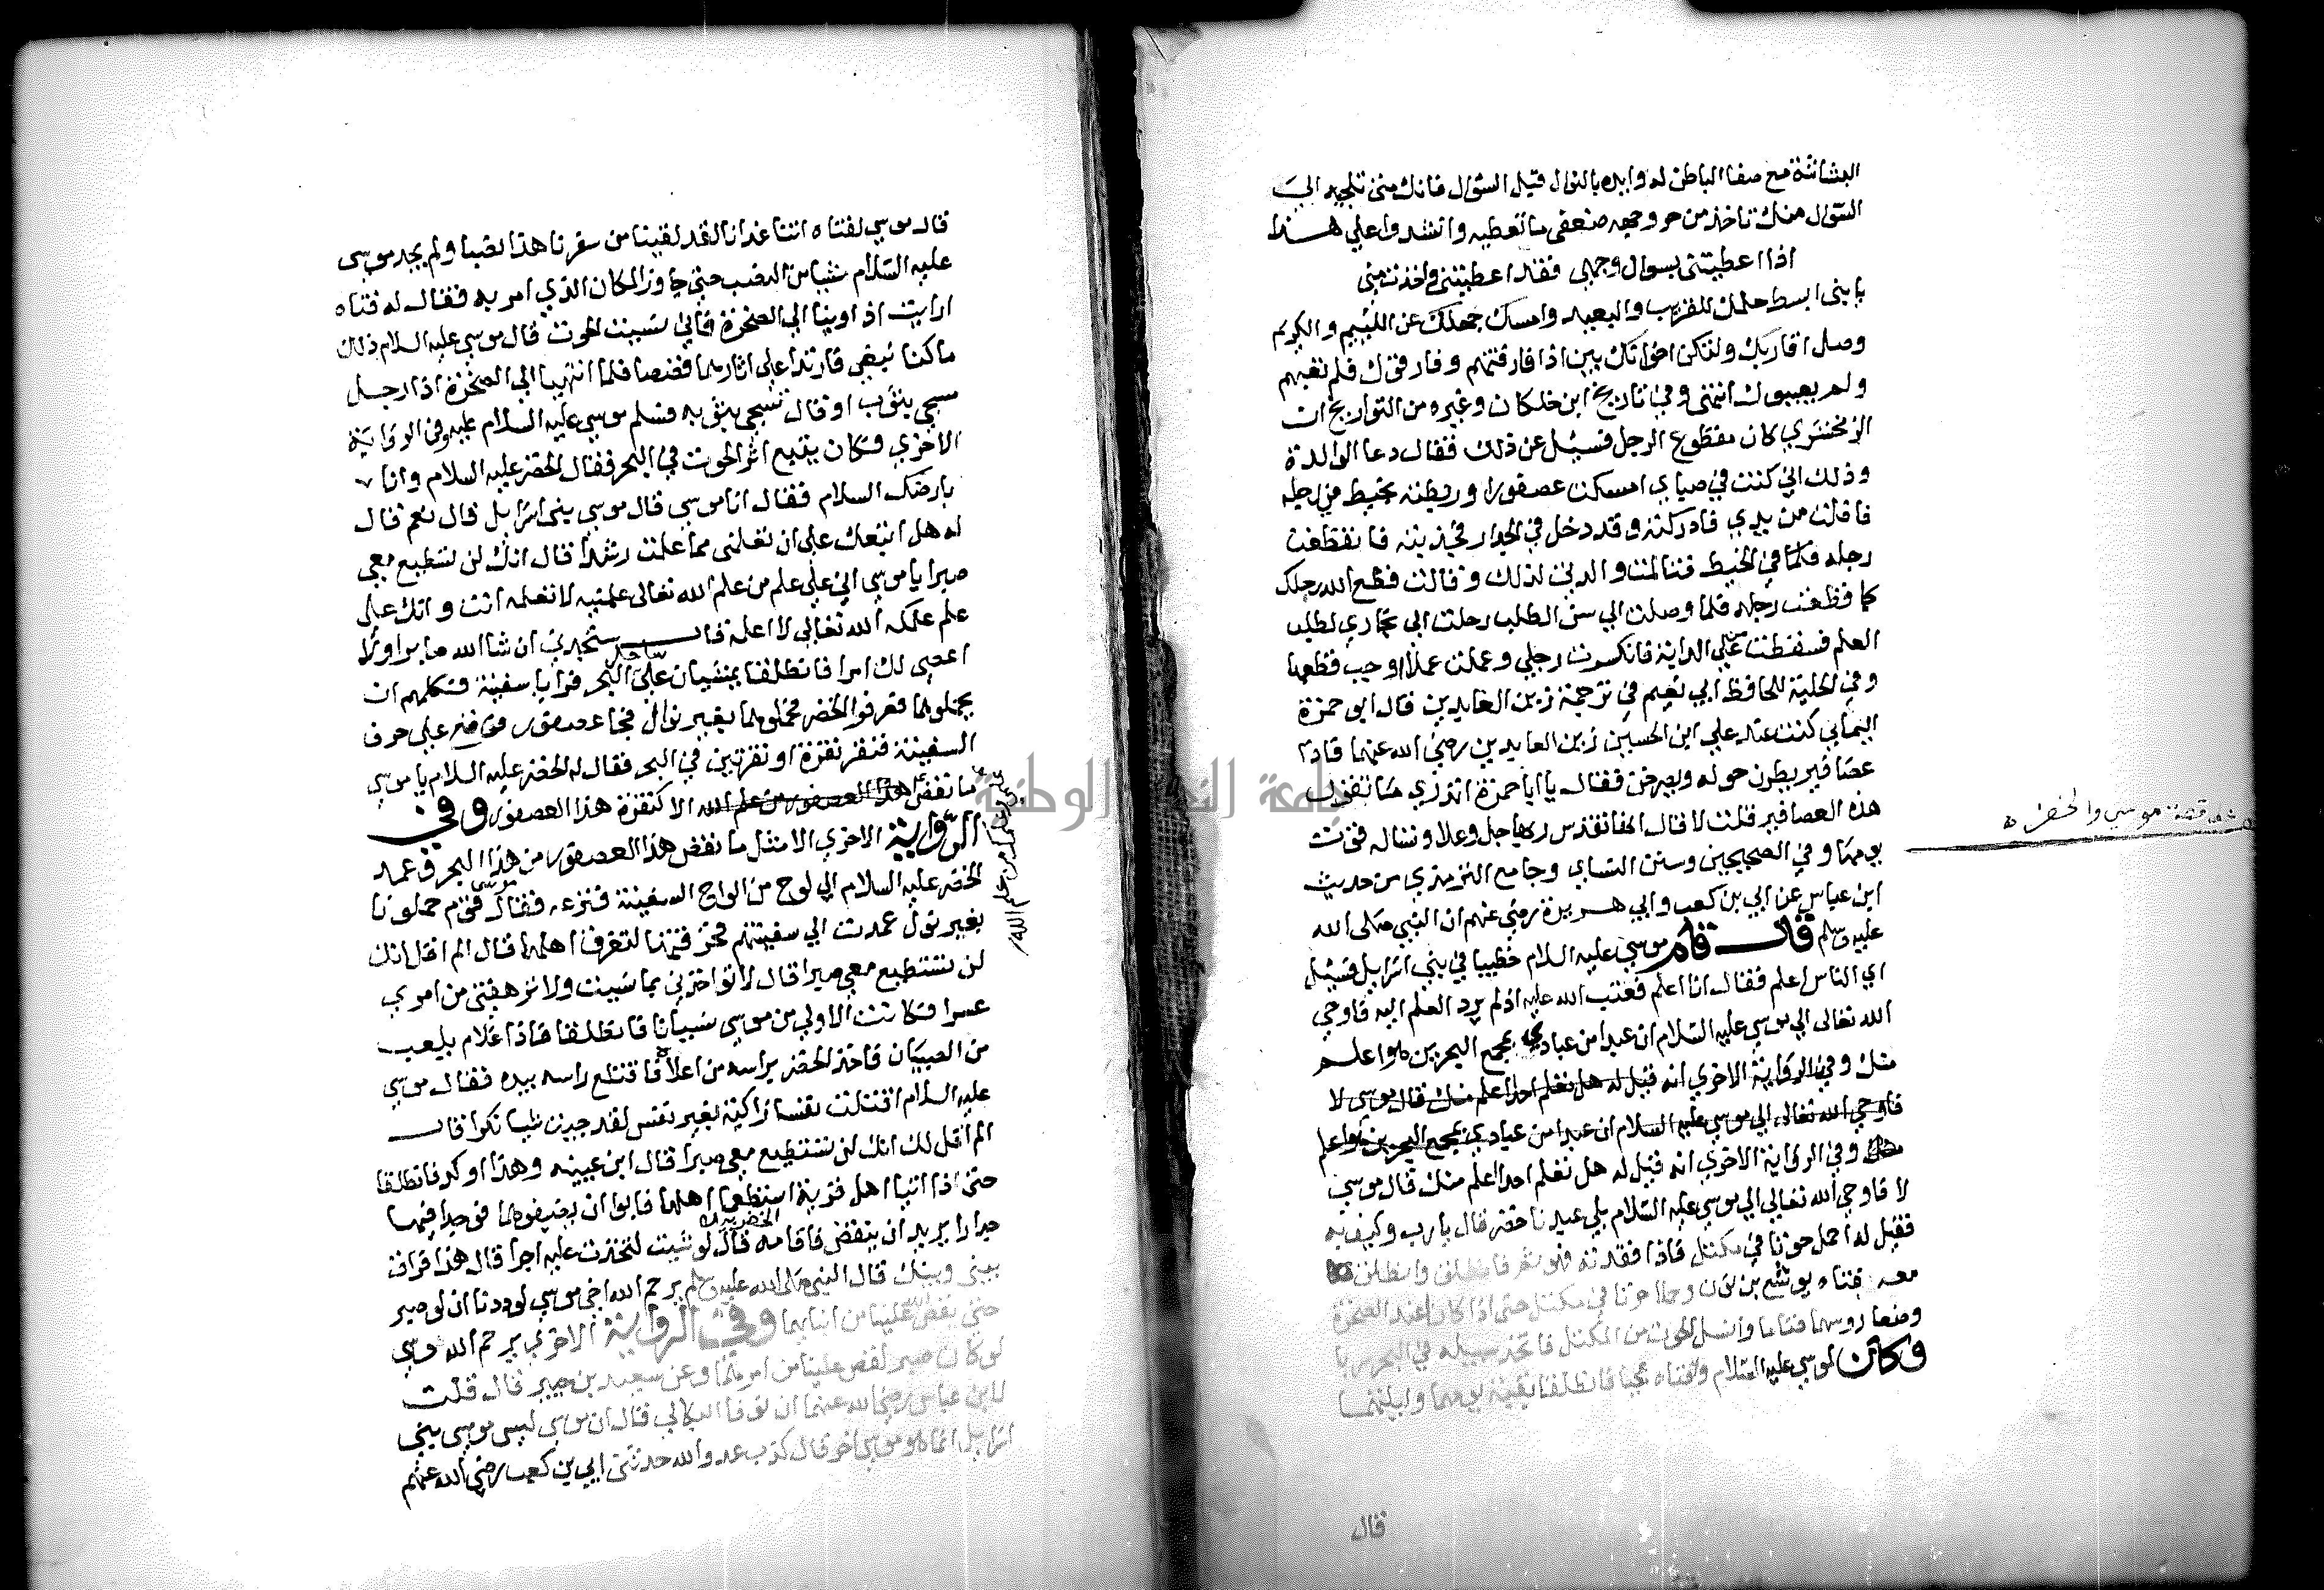 البشاشة مع صفا الباطن له وابده بالنوال قبل السؤال فانك متى تلجيه الى
السؤال منك تاخذ من حر وجهه ضعفى ما تعطيه وانشدوا على هذا
اذا اعطيتنى بسوال وجهى فقد اعطيتنى واخذت منى
يا بنى ابسط حلمك للقريب والبعيد وامسك جهلك عن اللئيم والكريم
وصل اقاربك ولتكن اخوانك بين اذا فارقتهم وفارقوك فلم تعبهم
ولم يعيبوك انتهى وفي تاريخ ابن خلكان وغيره من التواريخ ان
الزمخشري كان مقطوع الرجل فسئل عن ذلك فقال دعا الوالدة
وذلك اني كنت في صباي امسكت عصفورا وربطته بخيط في رجله
فافلت من يدي فادركته وقد دخل في الجدار فجذبته فانقطعت
رجله في الخيط فتالمت والدتي لذلك وقالت قطع الله رجلك
كما قطعت رجله فلما وصلت الى سن الطلب رحلت الى بخاري لطلب
العلم فسقطت عن الدابة فانكسرت رجلي وعملت عملا اوجب قطعها
وفي الحلية للحافظ ابي نعيم في ترجمة زين العابدين قال ابو حمزة
اليماني كنت عند علي ابن الحسين زين العابدين رضي الله عنهما فاذا
عصافير يطرن حوله ويصرخن فقال يا ابا حمزة اتدري ما تقول
هذه العصافير فقلت لا قال انها تقدس ربها جل وعلا وتساله قوت
يومها وفي الصحيحين وسنن النساي وجامع الترمذي من حديث
ابن عباس عن ابي بن كعب وابي هريرة رضي عنهم ان النبي صلى الله
عليه وسلم قال قام موسي عليه السلام خطيبا في بني اسرايل فسئل
اي الناس اعلم فقال انا اعلم فعتب الله عليه اذ لم يرد العلم اليه فاوحي
الله تعالى الي موسي عليه السلام ان عبدا من عبادي بمجمع البحرين هو اعلم
منك وفي الرواية الاخري انه قيل له هل تعلم احدا اعلم منك قال موسي لا
فاوحي الله تعالى الي موسي عليه السلام ان عبدا من عبادي بمجمع البحرين هو اعلم
وفي الرواية الاخري انه قيل له هل تعلم احدا اعلم منك قال موسي
لا فاوحي الله تعالي الي موسي عليه السلام بلي عبدنا خضر قال يا رب وكيف به
فقيل له احمل حوتا في مكتل فاذا فقدته فهو ثم فانطلق وانطلق
معه فتاه يوشع بن نون وحملا حوتا في مكتل حتى اذا كانا عند الصخرة
وضعا روسهما فناما وانسل الحوت من المكتل فاتخذ سبيله في البحر سربا
وكان لموسي عليه السلام ولفتاه عجبا فانطلقا بقية يومهما وليلتهما
قال
قصة موسي والخضر
قال موسي لفتاه اتنا غدانا لقد لقينا من سفرنا هذا نصبا ولم يجد موسى
عليه السلام شيا من النصب حتى جاوز المكان الذي امر به فقال له فتاه
ارايت اذ اوينا الي الصخرة فاني نسيت الحوت قال موسي عليه السلام ذلك
ما كنا نبغي فارتدا على اثارهما قصصا فلما انتهيا الي الصخرة اذا رجل
مسجي بثوب او قال تسجي بثوبه فسلم موسي عليه السلام عليه وفي الرواية
الاخري فكان يتبع اثر الحوت في البحر فقال الخضر عليه السلام وانا
بارضك السلام فقال انا موسي قال موسي بنى اسرايل قال نعم قال
له هل اتبعك على ان تعلمنى مما علمت رشدا قال انك لن تستطيع معي
صبرا يا موسي اني علي علم من علم الله تعالى علمنيه لا تعلمه انت وانك على
علم علمكه الله تعالي لا اعلمه قال ستجدني ان شا الله صابرا ولا
اعصي لك امرا فانطلقا يمشيان على ساحل البحر فرايا سفينة فكلمهم ان
يحملوهما فعرفوا الخضر فحملوهما بغير نوال فجا عصفور فوقع على حرف
السفينة فنقر نقرة او نقرتين في البحر فقال له الخضر عليه السلام يا موسي
ما نقص هذا العصفور من علم الله الا كنقرة هذا العصفور وفي
علمي وعلمك من علم الله
الرواية الاخري الا مثل ما نقص هذا العصفور من هذا البحر فعمد
الخضر عليه السلام الي لوح من الواح السفينة فنزعه فقال موسي قوم حملونا
بغير نول عمدت الي سفينتهم فخرقتها لتغرق اهلها قال الم اقل انك
لن تستطيع معي صبرا قال لا تواخذني بما نسيت ولا ترهقنى من امري
عسرا فكانت الاولي من موسي نسيانا فانطلقا فاذا غلام يلعب
من الصبيان فاخذ الخضر براسه من اعلاه فاقتلع راسه بيده فقال موسي
عليه السلام اقتلت نفسا زاكية بغير نفس لقد جيت شيا نكرا قال
الم اقل لك انك لن تستطيع معي صبرا قال ابن عيينه وهذا اوكد فانطلقا
حتى اذا اتيا اهل قرية استطعما اهلها فابوا ان يضيفوهما فوجدا فيها
جدارا يريد ان ينقض فاقامه الخضر بيده قال لو شيت لتخذت عليه اجرا قال هذا فراق
بيني وبينك قال النبي صلى الله عليه وسلم يرحم الله اخي موسي لوددنا ان لو صبر
حتى يقص الله علينا من انبايهما وفي الرواية الاخري يرحم الله موسي
لو كان صبر لقص علينا من امرهما وعن سعيد بن جبير قال قلت
لابن عباس رضي الله عنهما ان نوفا البكالي قال ان موسي ليس موسي بني
اسرايل انما هو موسي اخر قال كذب عدو الله حدثنى ابي بن كعب رضي الله عنهم
جامعة النجاح الوطنية